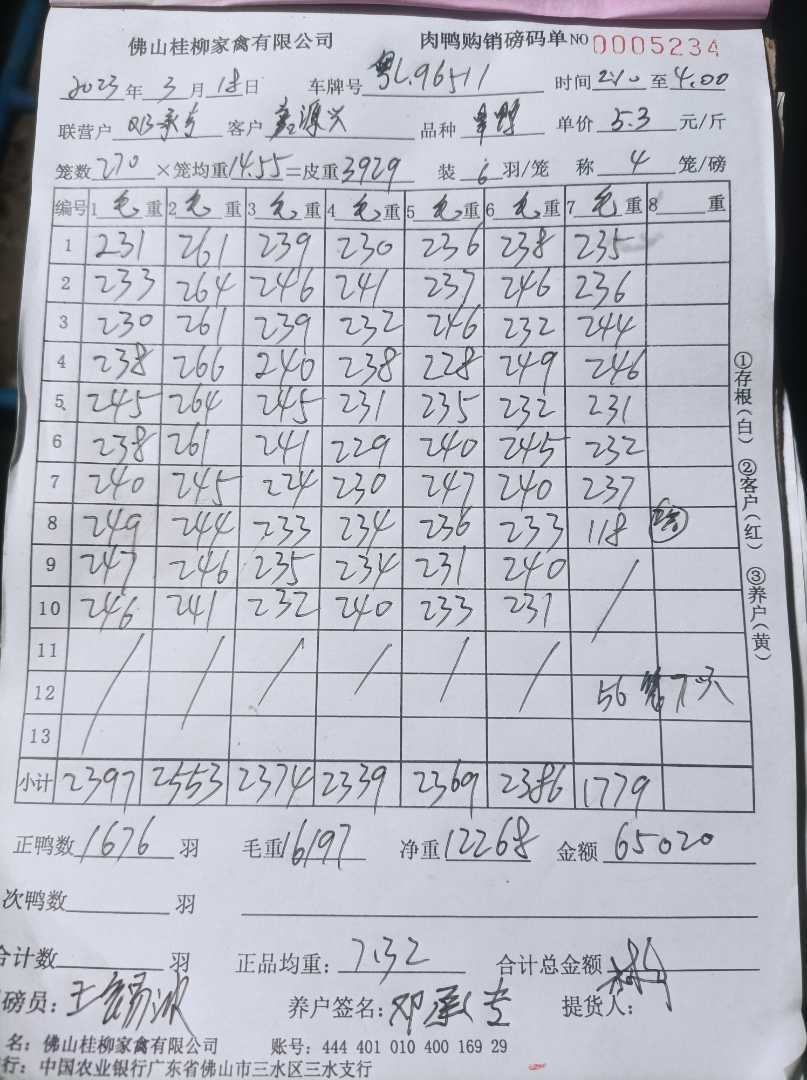 佛山桂柳家禽有限公司 肉鸭购销磅码单 NO 0005234
2023年3月18日 车牌号 粤L.96511 时间 2:10 至 4.00
联营户 邓承专 客户 源兴 品种 单价 5.3 元/斤
笼数 270 ×笼均重 14.55 =皮重 3929 装 6 羽/笼 称 4 笼/磅
编号 1 毛 重 2 毛 重 3 毛 重 4 毛 重 5 毛 重 6 毛 重 7 毛 重 8 重
1 231 261 239 230 236 238 235
2 233 264 246 241 237 246 236
3 230 261 239 232 246 232 244
4 238 266 240 238 228 249 246
5 245 264 245 231 235 232 231
6 238 261 241 229 240 245 232
7 240 245 224 230 247 240 237
8 249 244 233 234 236 233 118
9 247 246 235 234 231 240 /
10 246 241 232 240 233 231
11 / / / / / /
12 56 7只
13
小计 2397 2553 2374 2339 2369 2386 1779
正鸭数 1676 羽 毛重 16197 净重 12268 金额 65020
次鸭数 羽
合计数 羽 正品均重: 7.32 合计总金额
磅员: 养户签名: 邓承专 提货人:
名: 佛山桂柳家禽有限公司 账号: 444 401 010 400 169 29
行: 中国农业银行广东省佛山市三水区三水支行
①存根(白) ②客户(红) ③养户(黄)